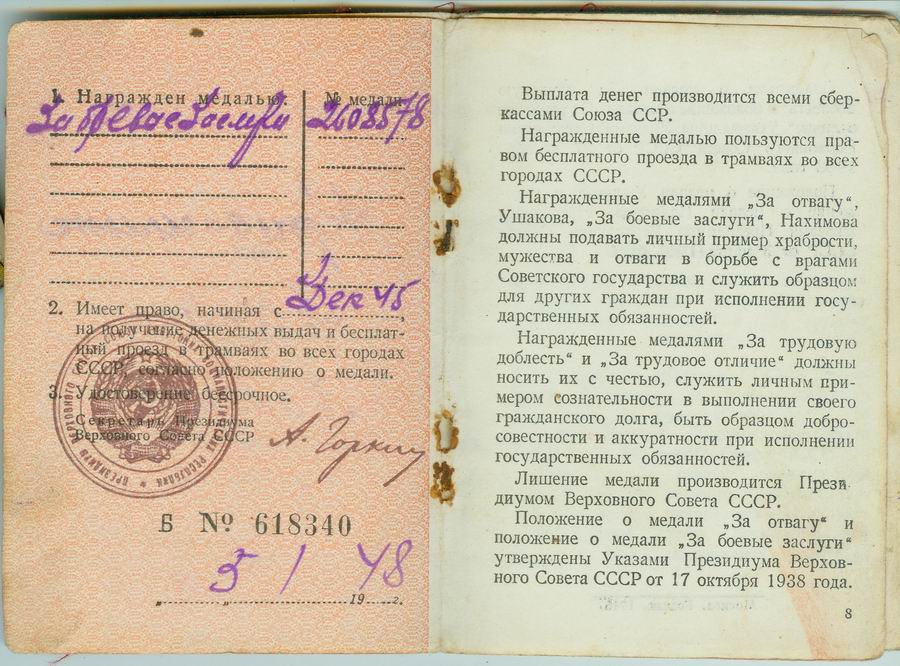 1. Награжден медалью:
№ медали
2608578
Дек 45
2. Имеет право, начиная с
на получение денежных выдач и бесплат-
ный проезд в трамваях во всех городах
СССР, согласно положению о медали.
3. Удостоверение бессрочное.
Секретарь Президиума
Верховного Совета СССР
А. Горкин
Б № 618340
5 / 1 48
19 г.
Выплата денег производится всеми сбер-
кассами Союза ССР.
Награжденные медалью пользуются пра-
вом бесплатного проезда в трамваях во всех
городах СССР.
Награжденные медалями „За отвагу“,
Ушакова, „За боевые заслуги“, Нахимова
должны подавать личный пример храбрости,
мужества и отваги в борьбе с врагами
Советского государства и служить образцом
для других граждан при исполнении госу-
дарственных обязанностей.
Награжденные медалями „За трудовую
доблесть“ и „За трудовое отличие“ должны
носить их с честью, служить личным при-
мером сознательности в выполнении своего
гражданского долга, быть образцом добро-
совестности и аккуратности при исполнении
государственных обязанностей.
Лишение медали производится Прези-
диумом Верховного Совета СССР.
Положение о медали „За отвагу“ и
положение о медали „За боевые заслуги“
утверждены Указами Президиума Верхов-
ного Совета СССР от 17 октября 1938 года.
8